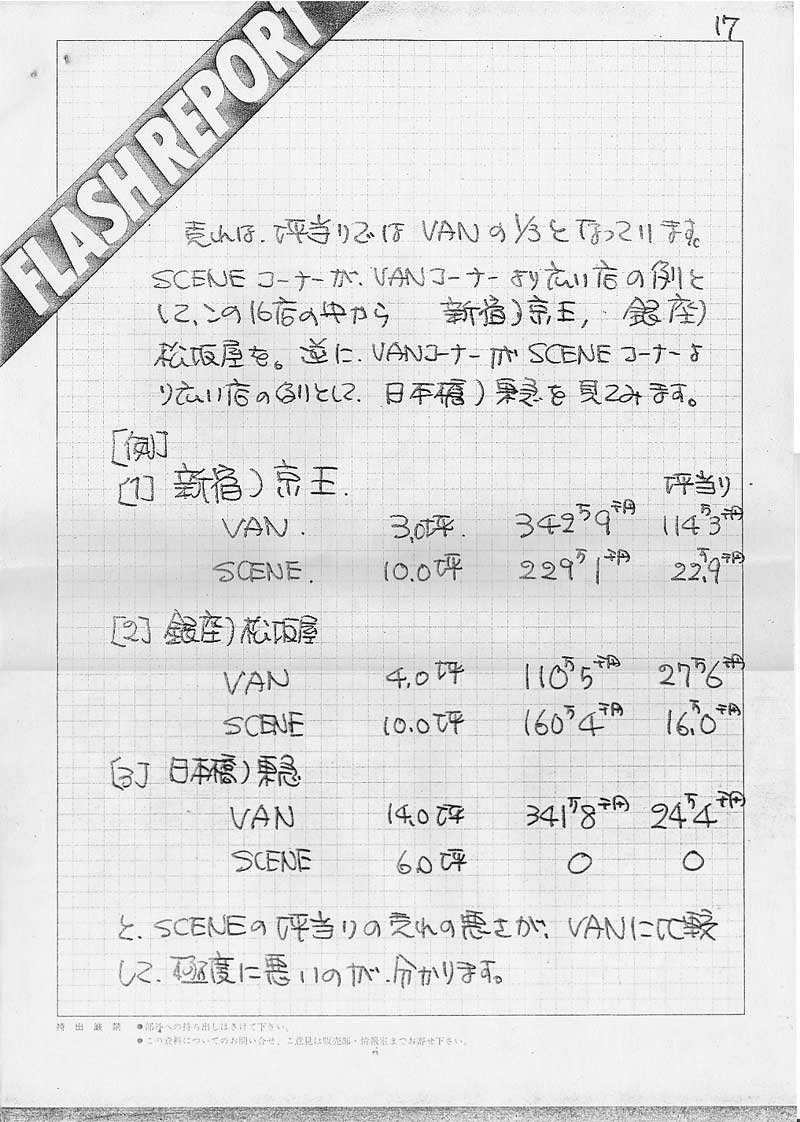 17
FLASH REPORT
売れは、坪当りでは VANの1/3となっています。
SCENEコーナーが、VANコーナーより広い店の例と
して、この16店の中から 新宿)京王, 銀座)
松坂屋を。逆に、VANコーナーがSCENEコーナーよ
り広い店の例として、日本橋)東急を見てみます。
[例]
[1] 新宿)京王. 坪当り
VAN. 3.0坪. 342万9千円 114万3千円
SCENE. 10.0坪 229万1千円 22万.9千円
[2] 銀座)松坂屋
VAN 4.0坪 110万5千円 27万6千円
SCENE 10.0坪 160万4千円 16万.0千円
[3] 日本橋)東急
VAN 14.0坪 341万8千円 24万4千円
SCENE 6.0坪 0 0
と、SCENEの坪当りの売れの悪さが、VANに比較
して、極度に悪いのが、分かります。
持出厳禁 ●部外への持ち出しはさけて下さい。
●この資料についてのお問い合せ、ご意見は販売部・情報室までお寄せ下さい。